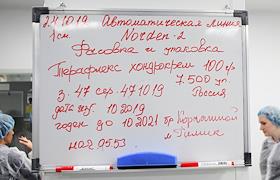 24.10.19 Автоматическая линия
1 см. Norden-2
Фасовка и упаковка
Терафлекс хондрокрем 100 гр
7.500 уп.
з. 47 сер 471019 Россия
дата изг. 10 2019
годен до 10 2021 пр Корпошной
м Филипк
мая 9553